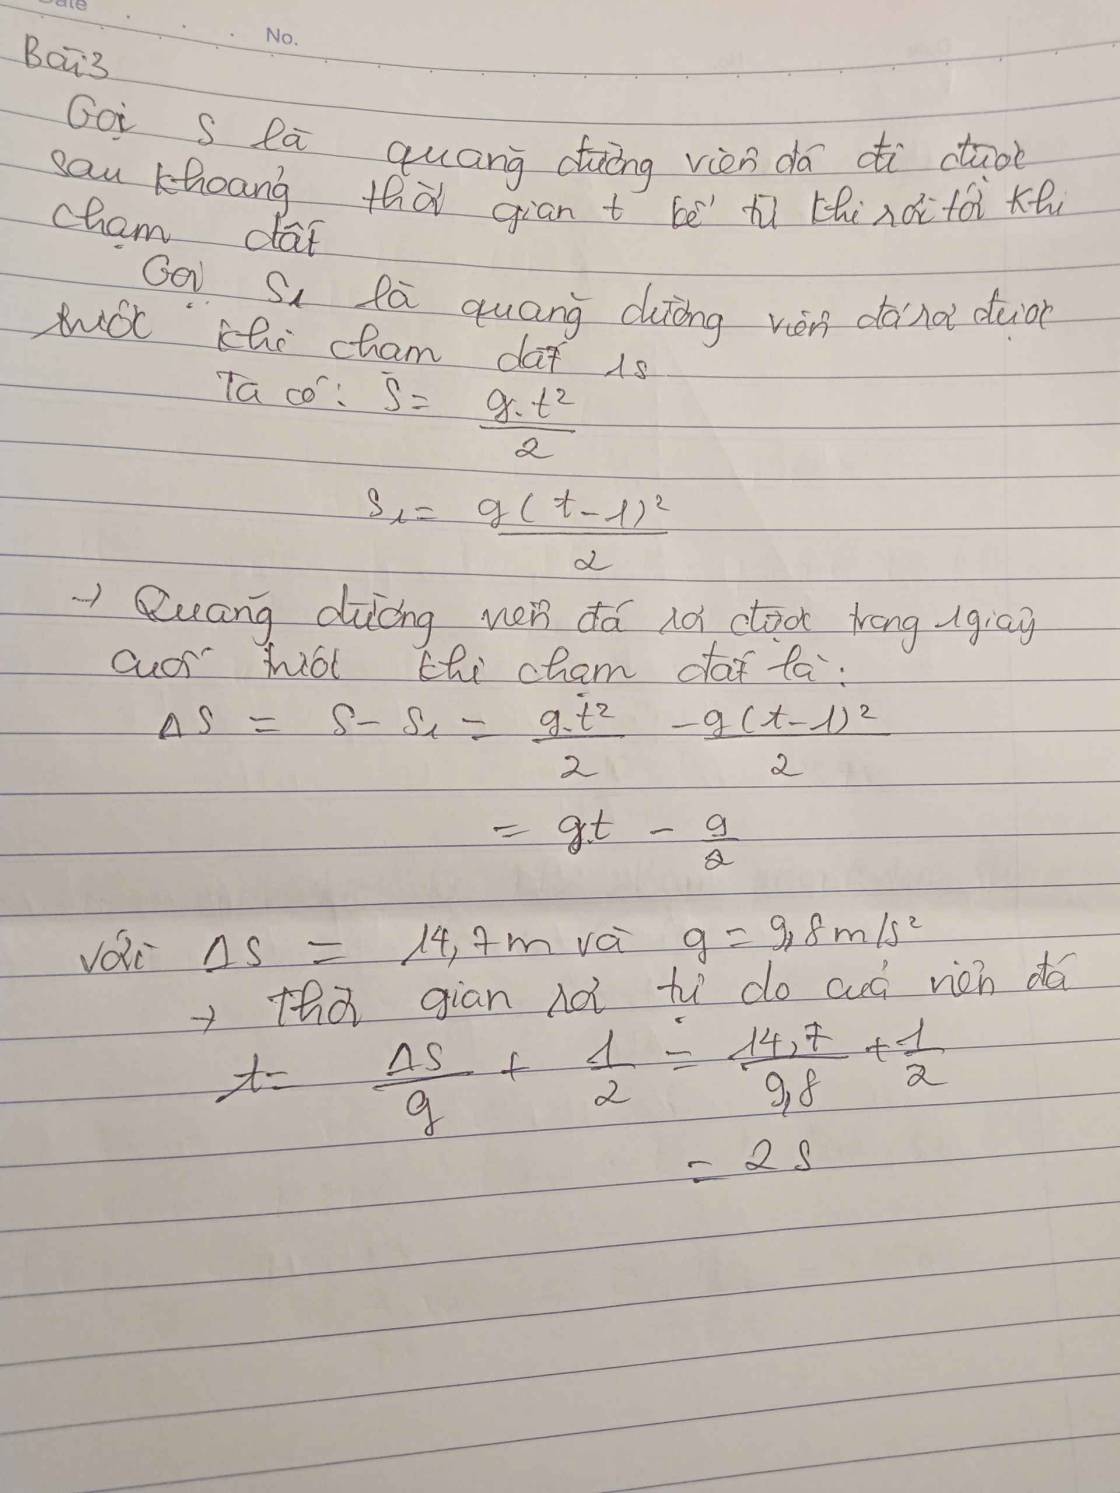 Date
No.
Bài 3
Gọi S là quãng đường viên đá đi được
sau khoảng thời gian t kể từ khi rơi tới khi
chạm đất
Gọi S₁ là quãng đường viên đá rơi được
trước khi chạm đất 1s
Ta có: S = g.t²/2
S₁ = g(t-1)²/2
→ Quãng đường viên đá rơi được trong 1 giây
cuối trước khi chạm đất là:
ΔS = S - S₁ = g.t²/2 - g(t-1)²/2
= g.t - g/2
với ΔS = 14,7m và g = 9,8m/s²
→ thời gian rơi tự do của viên đá
t = ΔS/g + 1/2 = 14,7/9,8 + 1/2
= 2s